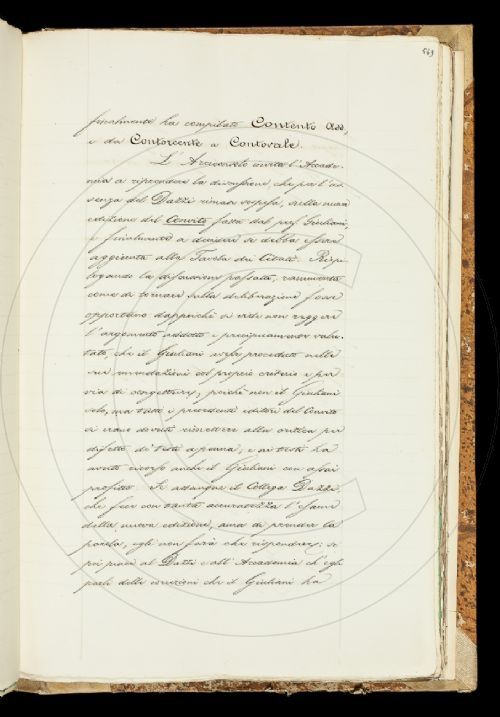 569
finalmente ha compilato Contento Add.,
e da Contorcente a Contovale.
L'Arciconsolo invita l'Accade-
mia a riprendere la discussione, che per l'as-
senza del Dazzi rimase sospesa, sulla nuova
edizione del Convito fatta dal prof. Giuliani,
e finalmente a decidere se debba essere
aggiunta alla Tavola dei Citati. Riepi-
logando la discussione passata, rammenta
come di tornare sulla deliberazione fosse
opportuno dappoiché si vide non reggere
l'argomento addotto e principalmente valu-
tato, che il Giuliani avesse proceduto nelle
sue emendazioni col proprio criterio e per
via di congetture; poiché non il Giuliani
solo, ma tutti i precedenti editori del Convito
si erano dovuti rimettere alla critica per
difetto di testi a penna; e ai testi ha
avuto ricorso anche il Giuliani con assai
profitto. Se adunque il Collega Dazzi,
che fece con tanta accuratezza l'esame
della nuova edizione, ama di prender la
parola, egli non farà che rispondere; se
poi piace al Dazzi e all'Accademia ch'egli
parli delle correzioni che il Giuliani ha